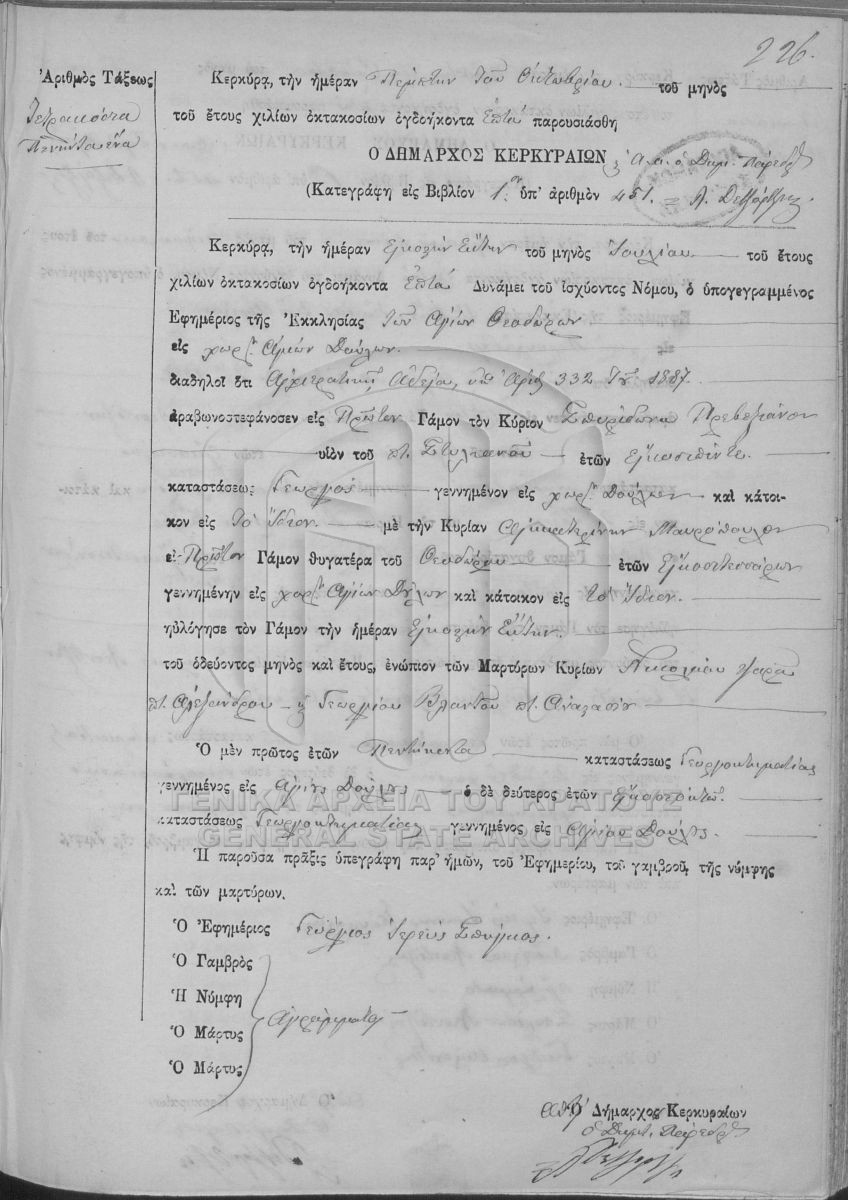 226.
Ἀριθμὸς Τάξεως
Τετρακόσια
Πενῆντα ἕνα
Κερκύρᾳ, τὴν ἡμέραν Πέμπτην τοῦ Ὀκτωβρίου τοῦ μηνὸς
τοῦ ἔτους χιλίων ὀκτακοσίων ὀγδοήκοντα Ἑπτὰ παρουσιάσθη
Ὁ ΔΗΜΑΡΧΟΣ ΚΕΡΚΥΡΑΙΩΝ ὁ Δημ. Πάρεδρος
(Κατεγράφη εἰς Βιβλίον 1ον ὑπ' ἀριθμὸν 451.
Κερκύρᾳ, τὴν ἡμέραν Εἰκοστὴν Ἕκτην τοῦ μηνὸς Ἰουλίου τοῦ ἔτους
χιλίων ὀκτακοσίων ὀγδοήκοντα Ἑπτὰ Δυνάμει τοῦ ἰσχύοντος Νόμου, ὁ ὑπογεγραμμένος
Ἐφημέριος τῆς Ἐκκλησίας τῶν Ἁγίων Θεοδώρων
εἰς χωρ. Ἁγίων Δούλων
διαδηλοῖ ὅτι Ἀρχιερατικῇ Ἀδείᾳ, ὑπ Ἀριθ 332 1887.
ἀραβωνοστεφάνοσεν εἰς Πρῶτον Γάμον τὸν Κύριον Σπυρίδωνα Πρεβεζιάνον
υἱὸν τοῦ πτ. Στυλιανοῦ ἐτῶν Εἰκοσιπέντε
καταστάσεως Γεωργὸς γεννημένον εἰς χωρ. Δούλων καὶ κάτοι-
κον εἰς Τὸ Ἴδιον. μὲ τὴν Κυρίαν Αἰκατερίνην Μαυροπούλου
εἰς Πρῶτον Γάμον θυγατέρα τοῦ Θεοδώρου ἐτῶν Εἰκοσιτεσσάρων
γεννημένην εἰς χωρ. Ἁγίων Δούλων καὶ κάτοικον εἰς τὸ Ἴδιον.
ηὐλόγησε τὸν Γάμον τὴν ἡμέραν Εἰκοστὴν Ἕκτην.
τοῦ ὁδεύοντος μηνὸς καὶ ἔτους, ἐνώπιον τῶν Μαρτύρων Κυρίων Νικολάου
πτ. Ἀλεξάνδρου Γεωργίου Βλαντοῦ πτ. Ἀναστασίου
Ὁ μὲν πρῶτος ἐτῶν Πενῆντα καταστάσεως Γεωργοκτηματίας
γεννημένος εἰς Ἁγίους Δούλους ὁ δὲ δεύτερος ἐτῶν Εἰκοσιοκτὼ
καταστάσεως Γεωργοκτηματίας γεννημένος εἰς Ἁγίους Δούλους.
Ἡ παροῦσα πρᾶξις ὑπεγράφη παρ' ἡμῶν, τοῦ Ἐφημερίου, τοῦ γαμβροῦ, τῆς νύμφης
καὶ τῶν μαρτύρων.
Ὁ Ἐφημέριος Γεώργιος Ἱερεὺς
Ὁ Γαμβρὸς
Ἡ Νύμφη
Ὁ Μάρτυς Ἀγράμματοι
Ὁ Μάρτυς
Ὁ Δήμαρχος Κερκυραίων
ὁ Δημτ. Πάρεδρος
ΓΕΝΙΚΑ ΑΡΧΕΙΑ ΤΟΥ ΚΡΑΤΟΥΣ
GENERAL STATE ARCHIVES